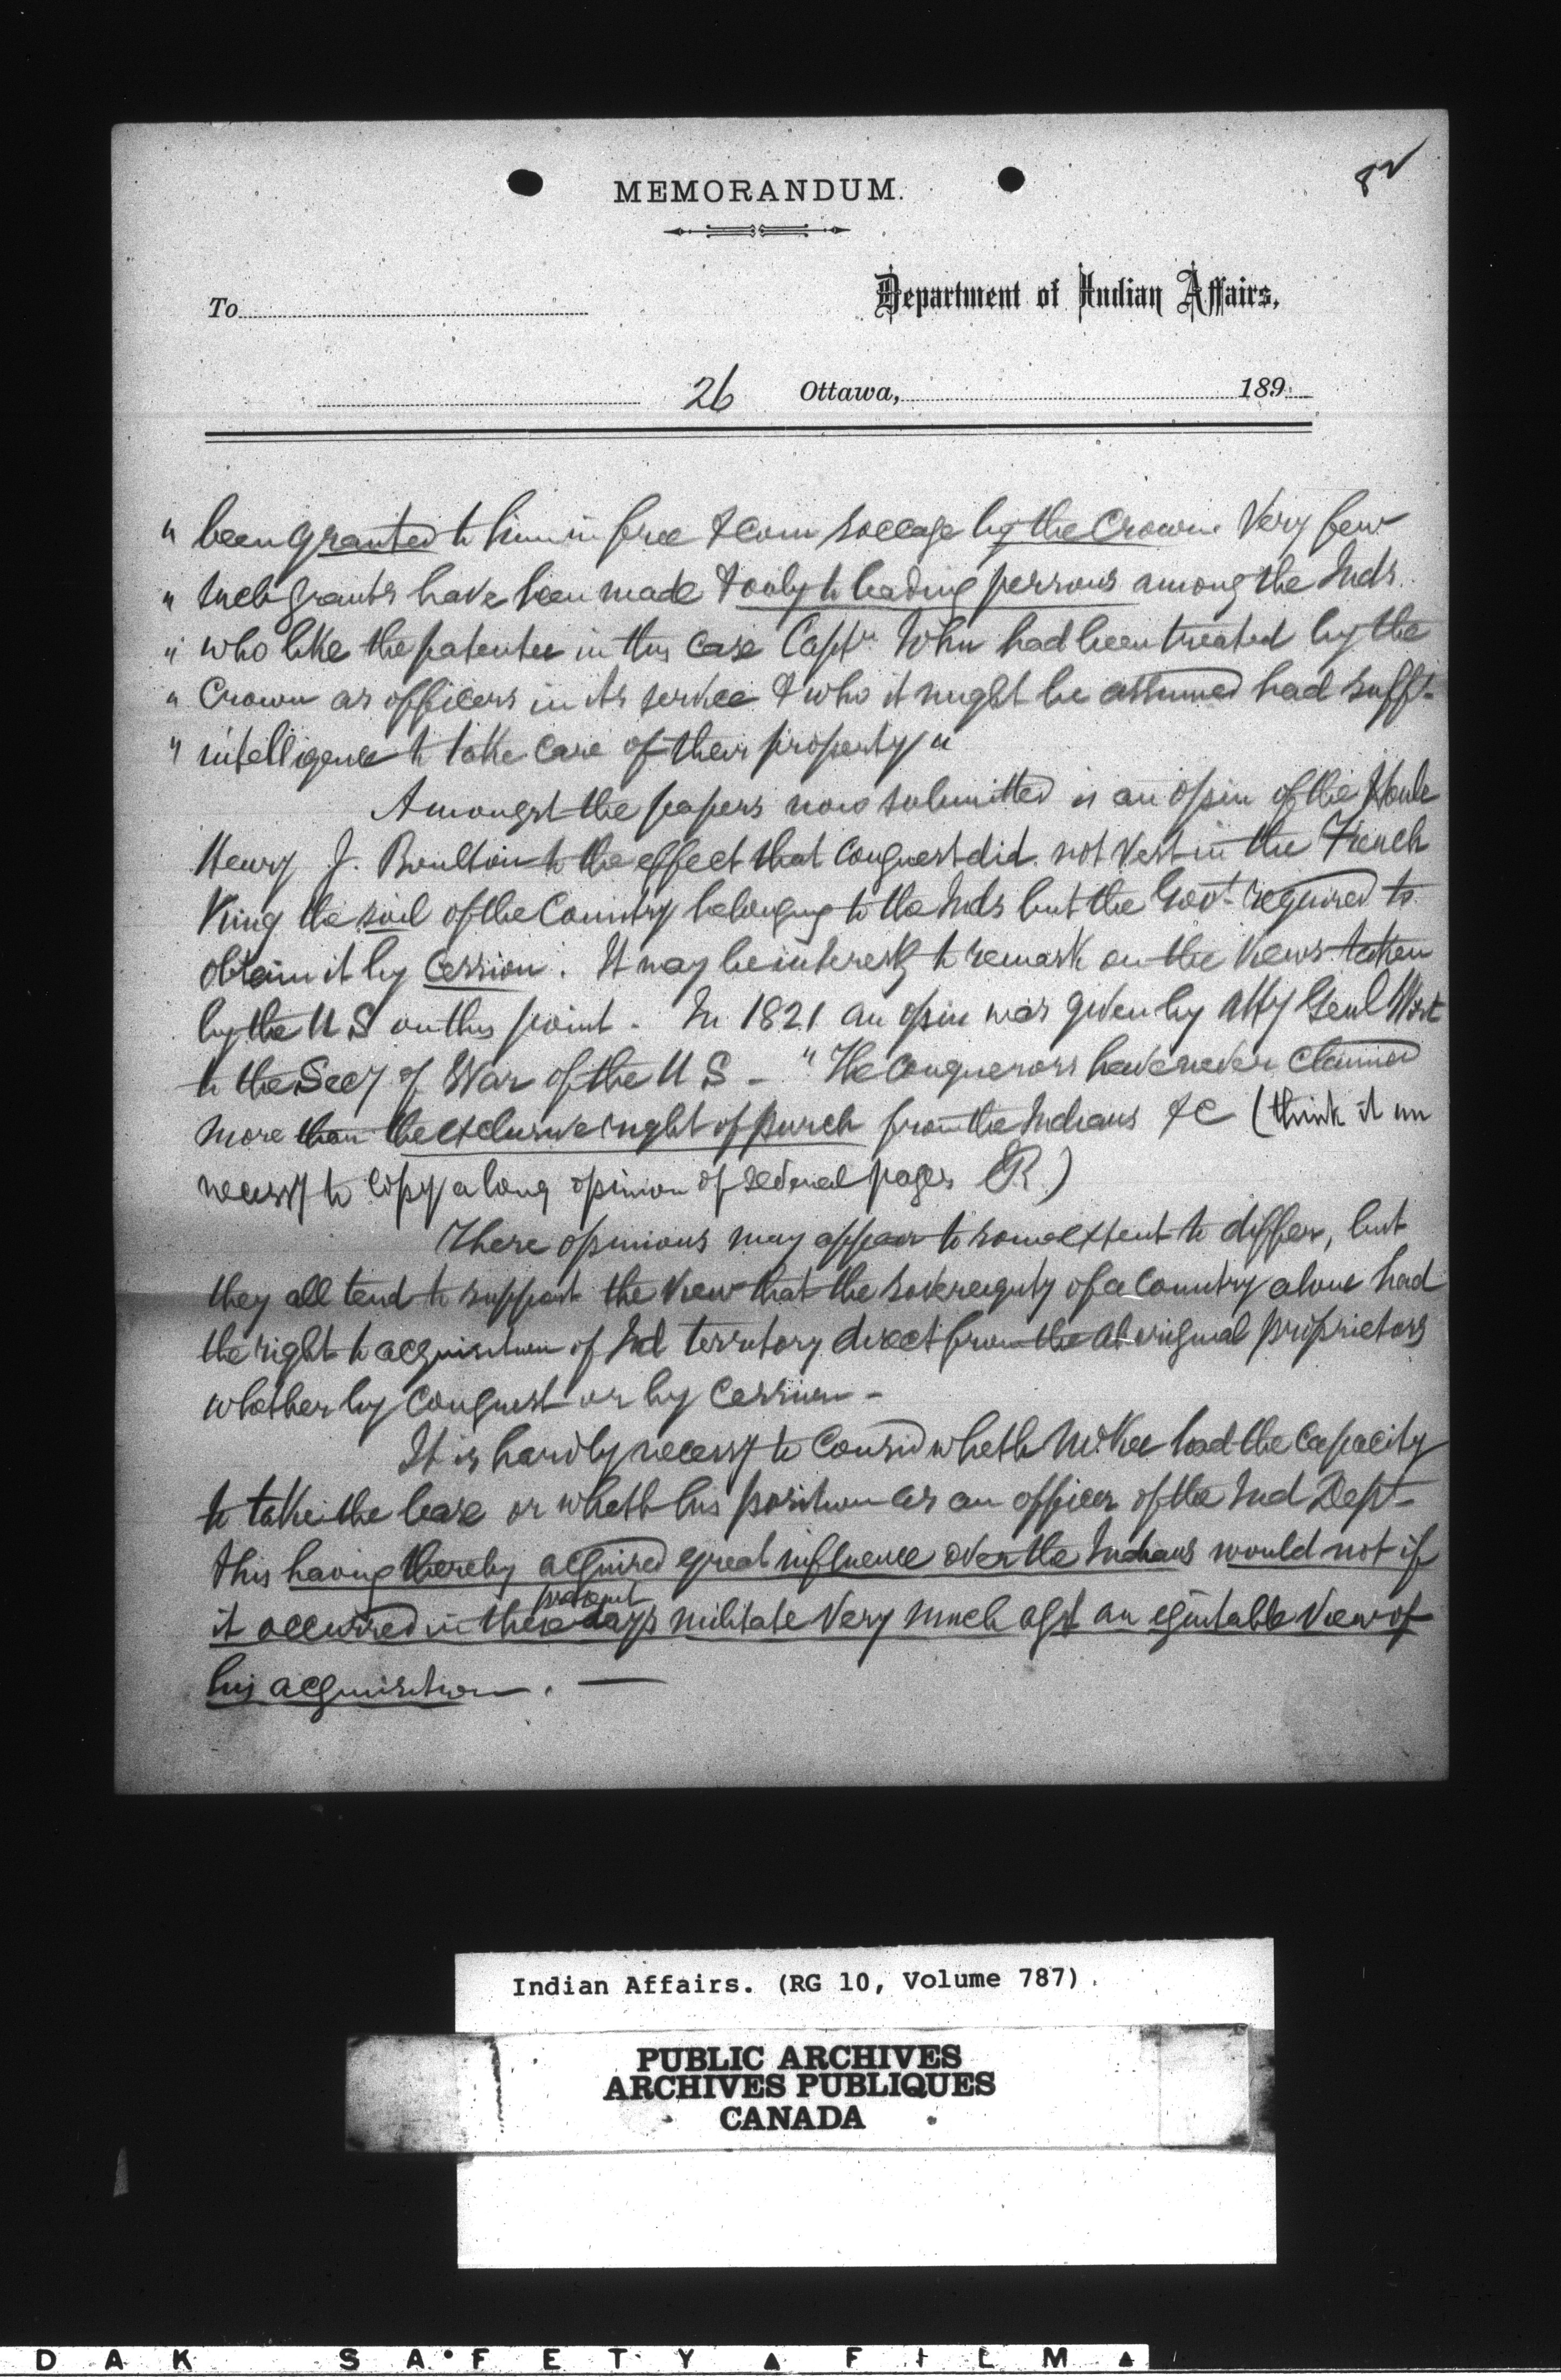 82
MEMORANDUM.
To
Department of Indian Affairs,
26 Ottawa, 189
" been granted to him in free & com soccage by the Crown. Very few
" such grants have been made & only to leading persons among the Inds.
" who like the patentee in this case Captn John had been treated by the
" Crown as officers in its service & who it might be assumed had sufft
" intelligence to take care of their property "
Amongst the papers now submitted is an opin of the Honle
Henry J. Boulton to the effect that conquest did not vest in the French
King the soil of the Country belonging to the Inds but the Govt required to
obtain it by Cession. It may be interestg to remark on the views taken
by the U S on this point. In 1821 an opin was given by Atty Genl Wirt
to the Secy of War of the U S - "The Conquerors have never claimed
more than the exclusive right of purch from the Indians &c (think it un
necessy to copy a long opinion of several pages R.)
These opinions may appear to some extent to differ, but
they all tend to support the view that the sovereignty of a Country alone had
the right to acquisition of Ind territory direct from the aboriginal proprietors
whether by Conquest or by Cession -
It is hardly necessy to Consid wheth McKee had the capacity
to take the lease or wheth his position as an officer of the Ind Dept
& his having thereby acquired great influence over the Indians would not if
present
it occurred in these days militate very much agst an equitable view of
his acquisition. —
Indian Affairs. (RG 10, Volume 787).
PUBLIC ARCHIVES
ARCHIVES PUBLIQUES
CANADA
DAK SAFETY FILM